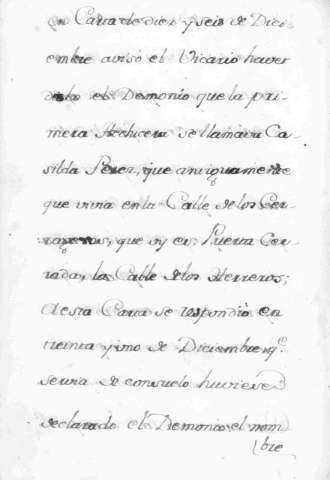 en Carta de diez y seis de Dici-
embre avisó el Vicario haver
dicho el Demonio que la pri-
mera Hechicera se llamava Ca-
silda Perez, que antiguamente
que vivia en la Calle de los Cer-
rageros, que oy es Puerta Cer-
rada, la Calle de los Herreros;
A esta Carta se respondió en
treinta y uno de Diciembre q.^e
seria de consuelo huviese
declarado el Demonio el nom
bre